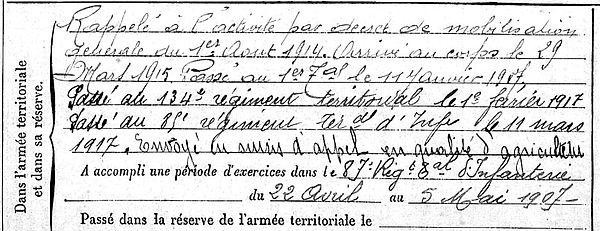 Rappelé à l'activité par décret de mobilisation
générale du 1er Aout 1914. Arrivé au corps le 29
Mars 1915 Passé au 1er Tal le 11 Janvier 1917.
Passé au 134e régiment territorial le 1er février 1917
Passé au régiment ter al d'Infie le 11 mars
1917. Envoyé en sursis d'appel en qualité d'agriculteur
Dans l'armée territoriale
et dans sa réserve.
A accompli une période d'exercices dans le 87e Rigt Eal d'Infanterie
du 22 Avril au 5 Mai 1907-
Passé dans la réserve de l'armée territoriale le